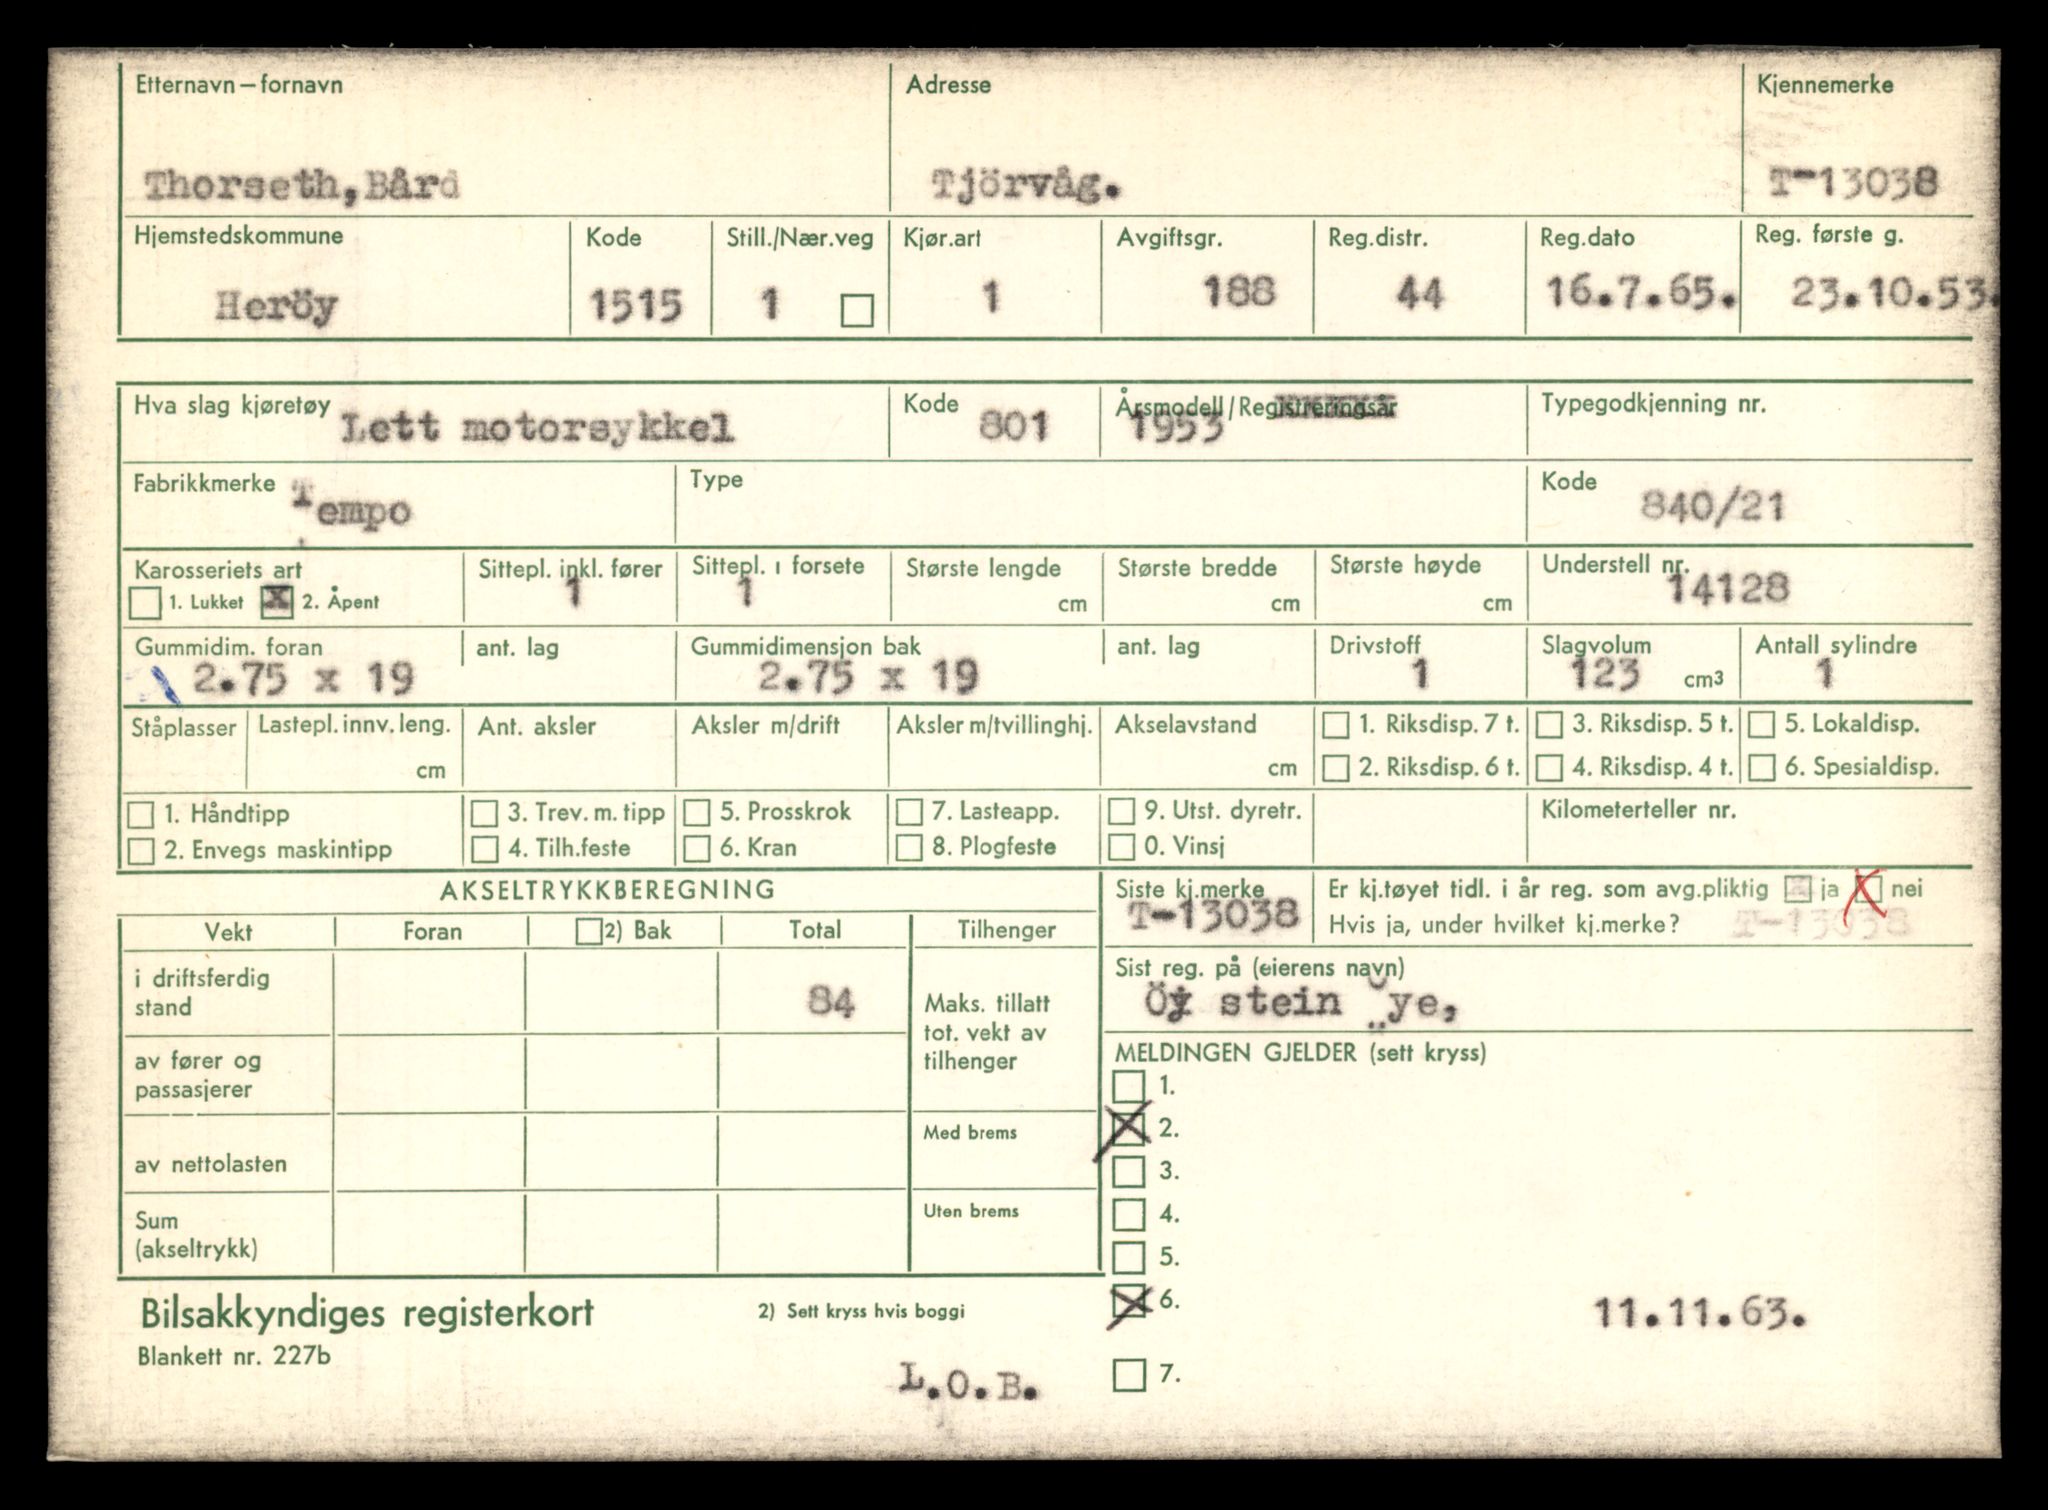 Etternavn – fornavn Adresse Kjennemerke
Thorseth, Bård Tjörvåg. T-13038
Hjemstedskommune Kode Still./Nær.veg Kjør.art Avgiftsgr. Reg.distr. Reg.dato Reg. første g.
Heröy 1515 1 1 188 44 16.7.65. 23.10.53.
Hva slag kjøretøy Lett motorsykkel Kode 801 Årsmodell/Registreringsår 1953 Typegodkjenning nr.
Fabrikkmerke Tempo Type Kode 840/21
Karosseriets art Sittepl. inkl. fører Sittepl. i forsete Største lengde Største bredde Største høyde Understell nr.
1. Lukket X 2. Åpent 1 1 cm cm cm 14128
Gummidim. foran ant. lag Gummidimensjon bak ant. lag Drivstoff Slagvolum Antall sylindre
2.75 x 19 2.75 x 19 1 123 cm3 1
Ståplasser Lastepl. innv. leng. Ant. aksler Aksler m/drift Aksler m/tvillinghj. Akselavstand 1. Riksdisp. 7 t. 3. Riksdisp. 5 t. 5. Lokaldisp.
cm cm 2. Riksdisp. 6 t. 4. Riksdisp. 4 t. 6. Spesialdisp.
1. Håndtipp 3. Trev. m. tipp 5. Prosskrok 7. Lasteapp. 9. Utst. dyretr. Kilometerteller nr.
2. Envegs maskintipp 4. Tilh.feste 6. Kran 8. Plogfeste 0. Vinsj
AKSELTRYKKBEREGNING
Vekt Foran 2) Bak Total Tilhenger
i driftsferdig
stand 84
av fører og
passasjerer
av nettolasten
Sum
(akseltrykk)
Maks. tillatt
tot. vekt av
tilhenger
Med brems
Uten brems
Siste kj.merke
T-13038
Er kj.tøyet tidl. i år reg. som avg.pliktig ja X nei
Hvis ja, under hvilket kj.merke? T-13038
Sist reg. på (eierens navn)
Öy stein Öye,
MELDINGEN GJELDER (sett kryss)
1.
X 2.
3.
4.
5.
X 6.
7.
11.11.63.
Bilsakkyndiges registerkort 2) Sett kryss hvis boggi
Blankett nr. 227b
L.O.B.